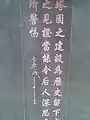 塔園之建設為歷史留下
之見證當能令后人深思
所警惕